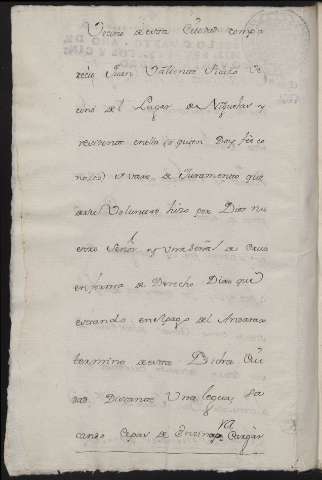 Vecino de esta Ciudad compa
recio Juan Valiente Ve
cino del Lugar de Niguelas y
residente en ella (a quien Doy fee co
nozco) y vajo de Juramento que
de su Voluntad hizo por Dios nu
estro Señor y una Señal de Cruz
en forma de Derecho Dixo que
estando en el pago del
termino de esta Dicha Ciu
dad Distante Una legua, Sa
cando Cepas de Encina Cargar